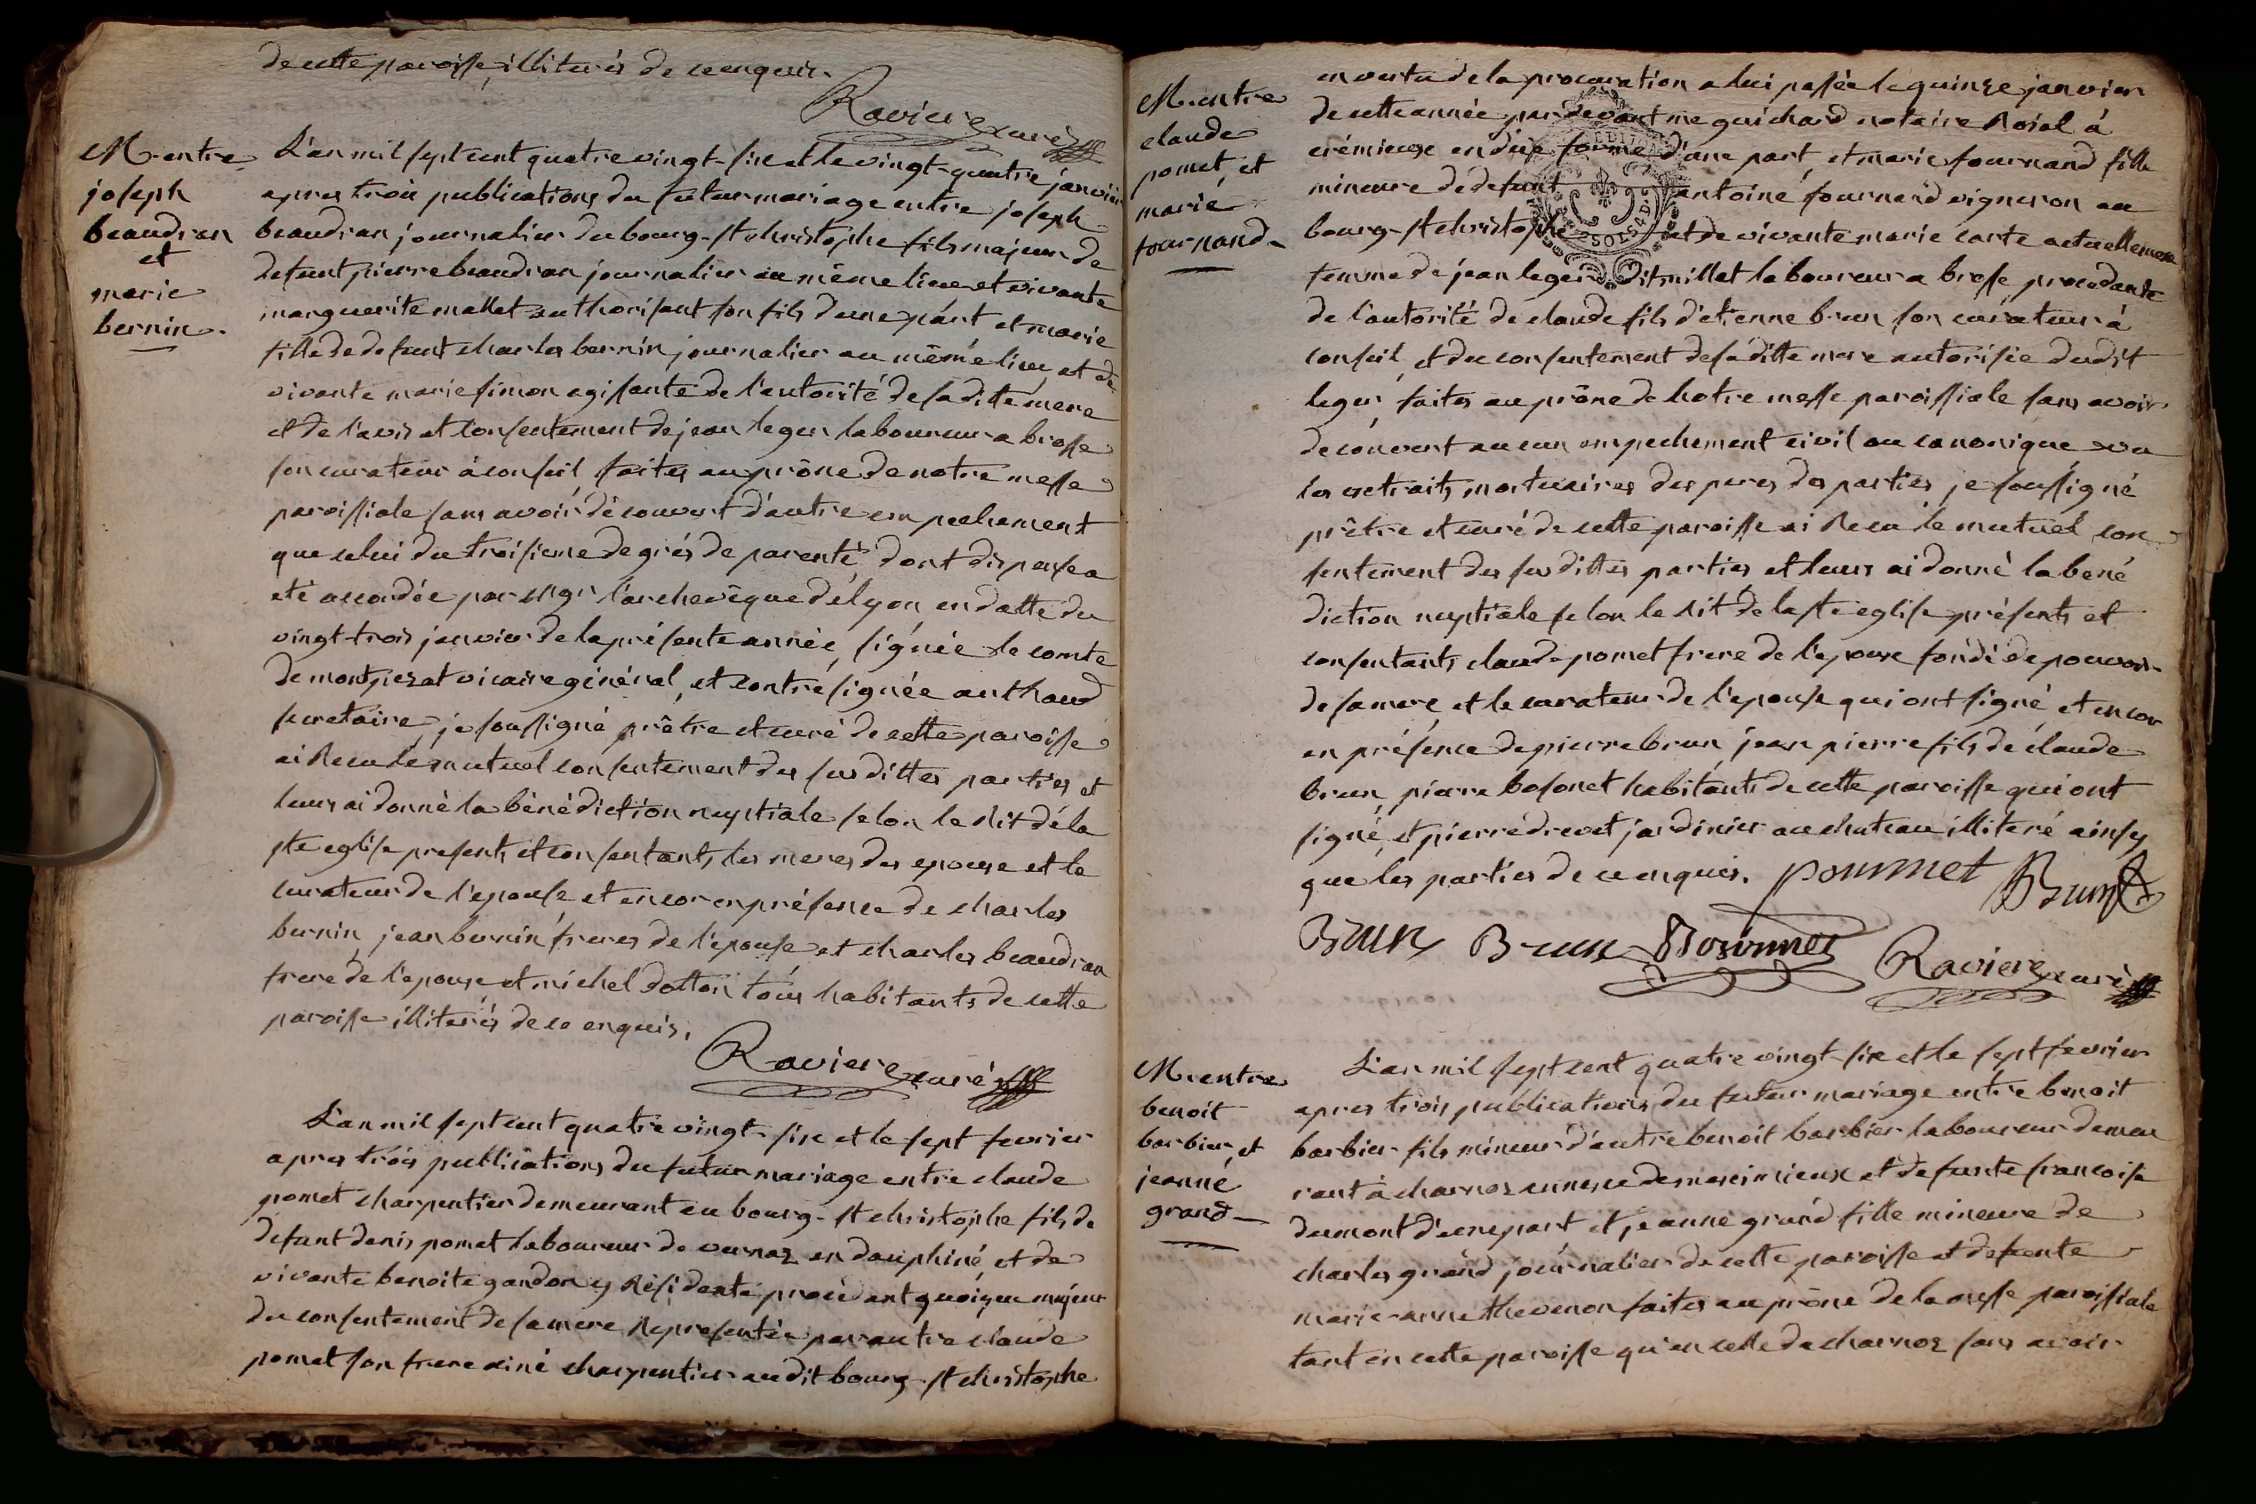 de cette paroisse, illiterés de ce enquis.
Raviere curé
M. entre
joseph
beaudran
et
marie
bernin.
L'an mil sept cent quatre vingt-six et le vingt-quatre janvier
apres trois publications du futur mariage entre joseph
beaudran journalier du bourg-st christophe fils majeur de
defunt pierre beaudran journalier au même lieu et vivante
marguerite mallet authorisant son fils d'une part et marie
fille de defunt charles bernin journalier au même lieu et de
vivante marie simon agissante de l'autorité de sa ditte mere
et de l'avis et consentement de jean leger laboureur a brosse
son curateur à conseil, faites au prône de notre messe
paroissiale sans avoir découvert d'autre empechement
que celui du troisieme degrés de parenté, dont dispense a
eté accordée par mgr l'archevêque de lyon, en datte du
vingt-trois janvier de la présente année, signée le comte
de montpezat vicaire général, et contresignée authaud
secretaire, je soussigné prêtre et curé de cette paroisse
ai recu le mutuel consentement des sus dittes parties et
leurs ai donné la bénédiction nuptiale selon le rit de la
ste eglise presents et consentants les meres des epoux et le
curateur de l'epouse et encor en présence de charles
bernin, jean bernin freres de l'epouse et charles beaudran
frere de l'epoux et michel dotton tous habitants de cette
paroisse illiterés de ce enquis.
Raviere curé
L'an mil sept cent quatre vingt-six et le sept fevrier
apres trois publications du futur mariage entre claude
pomet charpentier demeurant au bourg-st christophe fils de
defunt denis pomet laboureur de vernaz en dauphiné, et de
vivante benoite gandon y résidente procédant quoique majeur
du consentement de sa mere representée par autre claude
pomet son frere ainé charpentier au dit bourg-st christophe
M. entre
claude
pomet, et
marie
fournand.
en vertu de la procuration a lui passée le quinze janvier
de cette année par devant me guichard notaire roial à
crémieux en due forme d'une part, et marie fournand fille
mineure de defunt antoine fournand vigneron au
bourg-st christophe et de vivante marie carte actuellement
femme de jean leger dit millet laboureur a brosse, procedante
de l'autorité de claude fils d'etienne brun son curateur à
conseil, et du consentement de sa ditte mere autorisée du dit
leger, faites au prône de notre messe paroissiale sans avoir
découvert aucun empechement civil ou canonique, vu
les extraits mortuaires des peres des parties, je soussigné
prêtre et curé de cette paroisse ai recu le mutuel con-
sentement des sus dittes parties et leurs ai donné la béné
diction nuptiale selon le rit de la ste eglise présents et
consentants claude pomet frere de l'epoux fondé de pouvoir
de sa mere, et le curateur de l'epouse qui ont signé, et encor
en présence de pierre brun, jean pierre fils de claude
brun, pierre bosonet habitants de cette paroisse qui ont
signé, et pierre drevet jardinier au chateau illiteré ainsy
que les parties de ce enquis. pommet Brun
Brun Brun Bosonnet
Raviere curé
M. entre
benoit
barbier, et
jeanne
grand
L'an mil sept cent quatre vingt-six et le sept fevrier
apres trois publications du futur mariage entre benoit
barbier fils mineur d'autre benoit barbier laboureur demeu
rant à charnoz annexe de meximieux et defunte francoise
dumont d'une part et jeanne grand fille mineure de
charles grand journalier de cette paroisse et defunte
marie-anne thevenon faites au prône de la messe paroissiale
tant en cette paroisse qu'en celle de charnoz sans avoir